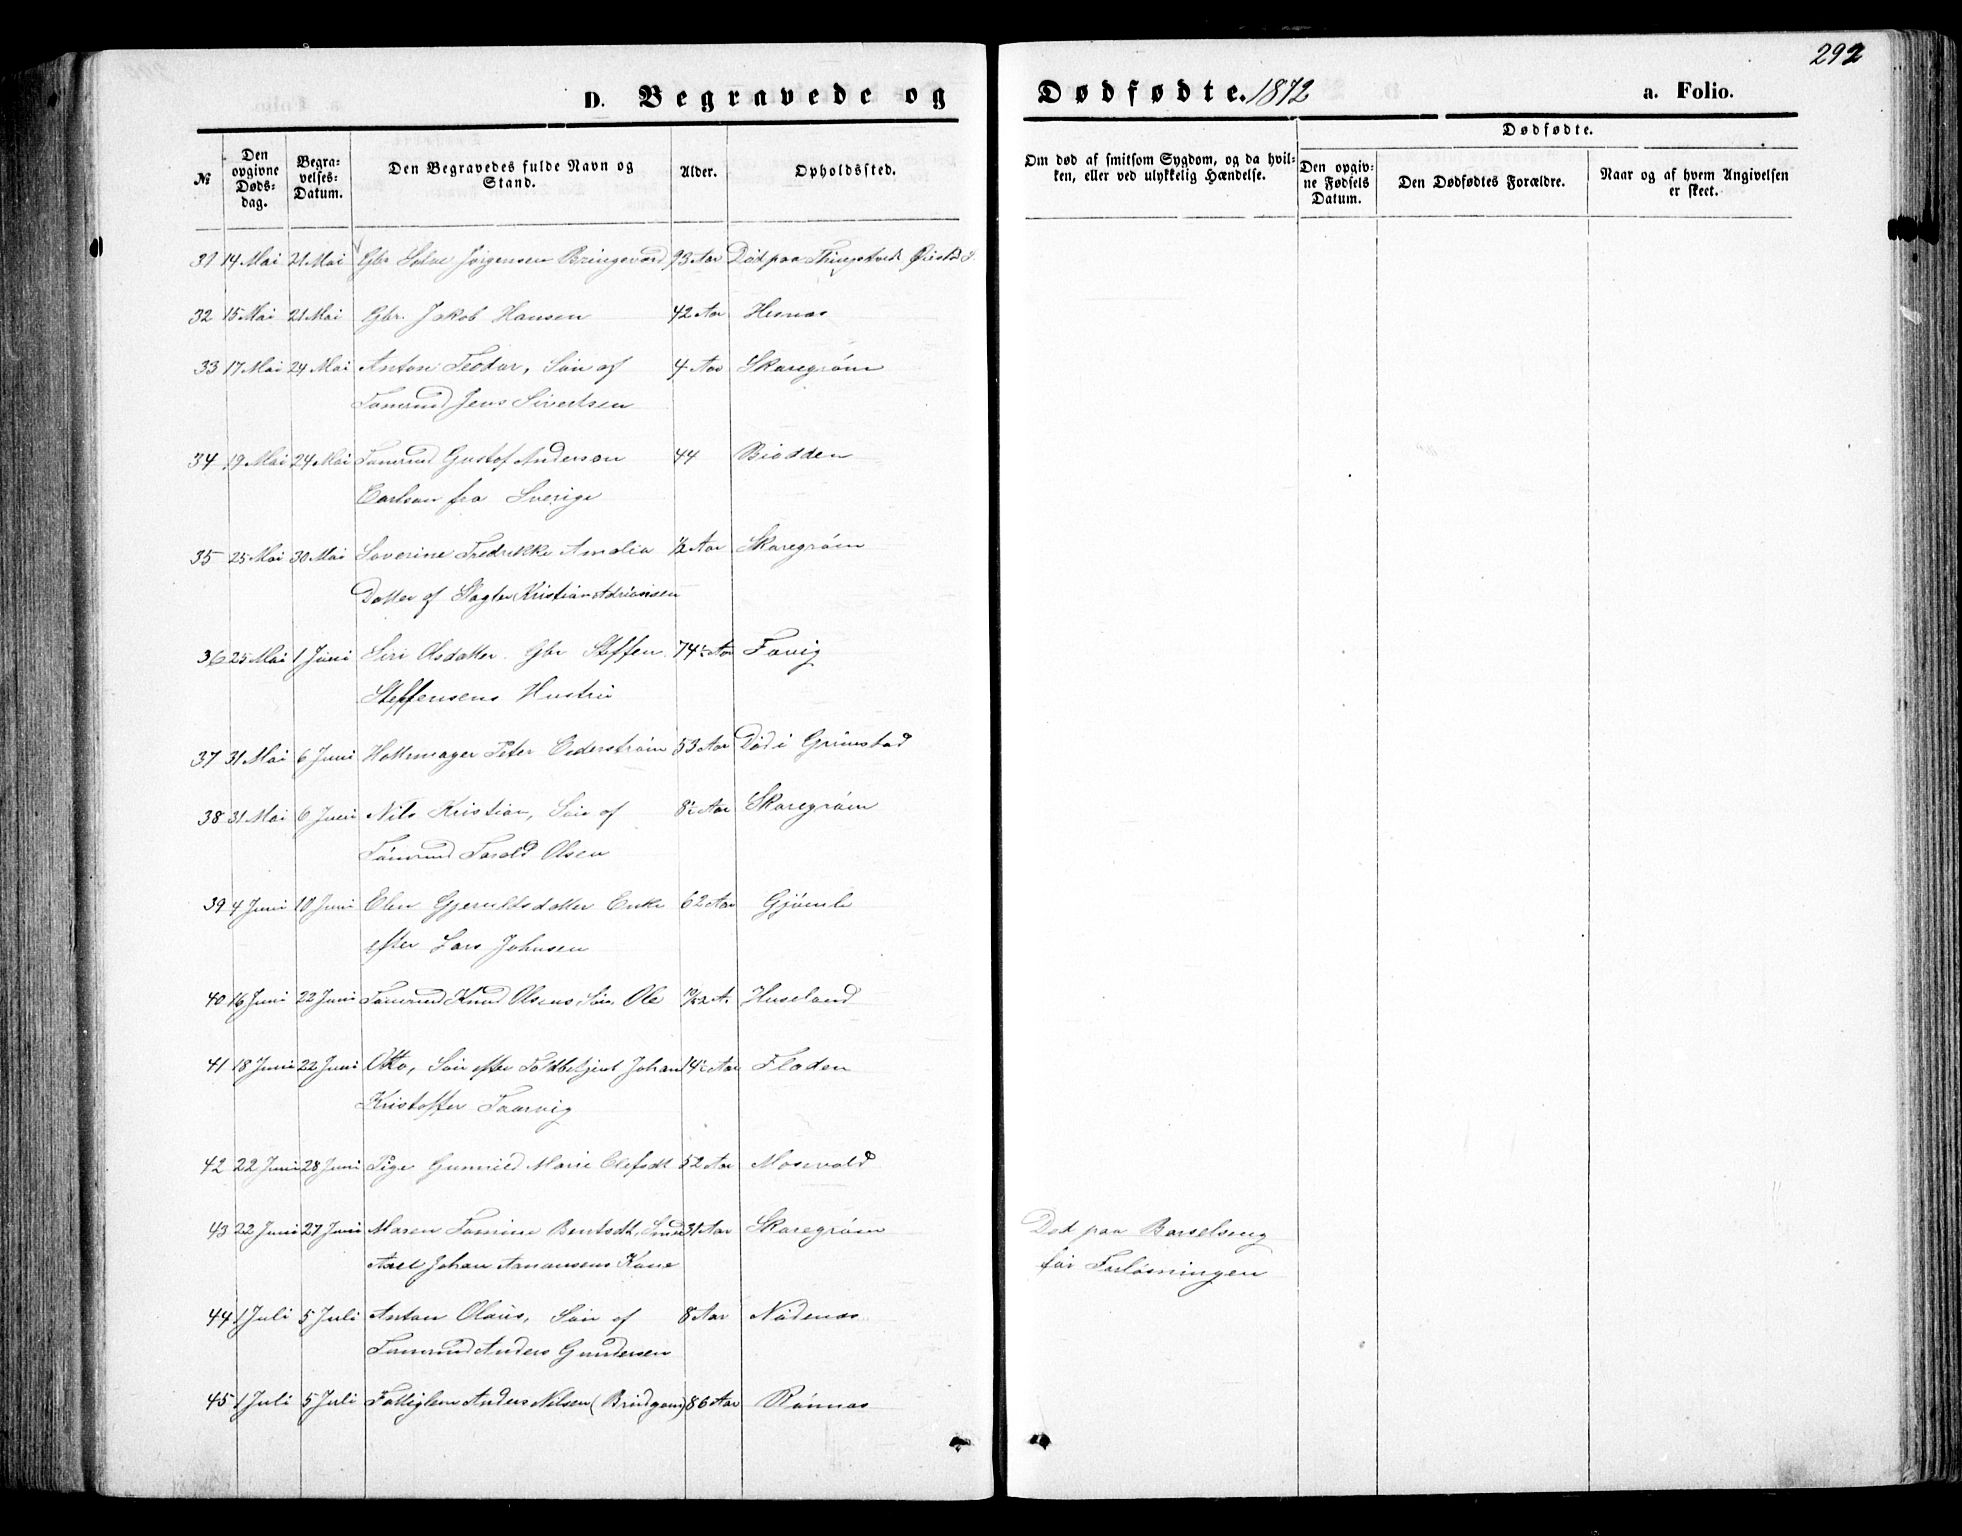 292
D. Begravede og Dødfødte. 1872 a. Folio.
№
Den opgivne Døds-dag.
Begra-velses-Datum.
Den Begravedes fulde Navn og Stand.
Alder.
Opholdssted.
Om død af smitsom Sygdom, og da hvil-ken, eller ved ulykkelig Hændelse.
Dødfødte.
Den opgiv-ne Fødsels Datum.
Den Dødfødtes Forældre.
Naar og af hvem Angivelsen er skeet.
31 14 Mai 21 Mai Gbr Jørgensen Bringsværd 93 Aar Død paa
32 15 Mai 21 Mai Gbr. Jakob Hansen 42 Aar Hesnæs
33 17 Mai 24 Mai Anton Teodor, Søn af 4 Aar Skaregrøm
Tømmd Jens Sivertsen
34 19 Mai 24 Mai Tømmd Gustof Anderson 44 Biodden
Carlson fra Sverige
35 25 Mai 30 Mai Severine Fredrikke Amalia ½ Aar Skaregrøm
Datter af Slagter Kristian Adriansen
36 25 Mai 1 Juni Siri Olsdatter Gbr Steffen 74½ Aar Favig
Steffensens Hustru
37 31 Mai 6 Juni Hattemager Peter Cederstrøm 53 Aar Død i Grimstad
38 31 Mai 6 Juni Nils Kristian, Søn af 8½ Aar Skaregrøm
Tømmd Tarald Olsen
39 4 Juni 10 Juni Elen Gjeruldsdatter Enke 62 Aar Gjømle
efter Lars Johnsen
40 16 Juni 22 Juni Tømmd Knud Olsens Søn Ole 10/52 A. Huseland
41 18 Juni 22 Juni Otto, Søn efter Toldbetjent Johan 14½ Aar Fladen
Kristoffer Taarvig
42 22 Juni 28 Juni Pige Gunnild Marie Olefsdt 52 Aar Mosevold
43 22 Juni 27 Juni Maren Tomine Bentsdt, Smed 31 Aar Skaregrøm Død paa Barselseng
Axel Johan Aanonsens Kone før Forløsningen
44 1 Juli 5 Juli Anton Olaus, Søn af 8 Aar Nødenæs
Tømmd Anders Gundersen
45 1 Juli 5 Juli Fattiglem Anders Nilsen (Brudgom) 86 Aar Rønnæs